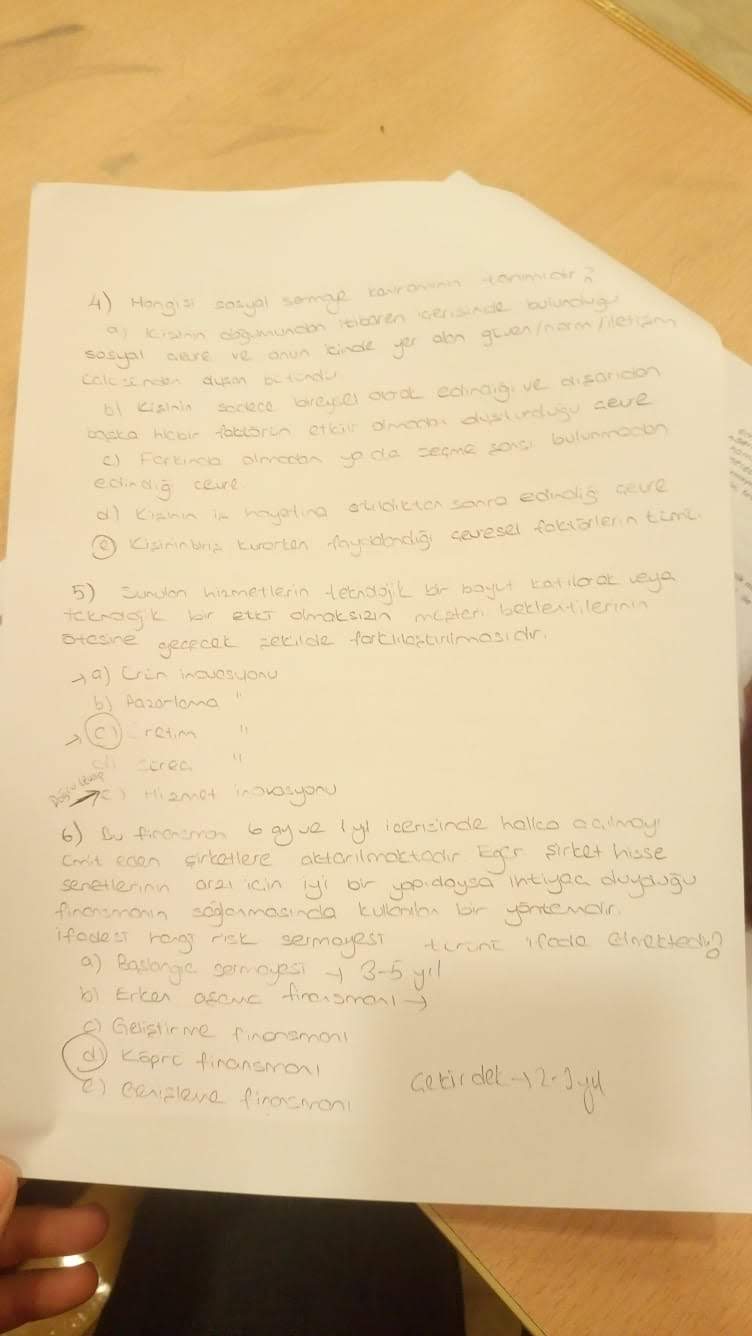 4) Hangisi sosyal sermaye kavramının tanımıdır?
a) Kişinin doğumundan itibaren içerisinde bulunduğu
sosyal çevre ve onun içinde yer alan güven/norm/iletişim
bütündü
b) Kişinin sadece bireysel olarak edindiği ve dışarıdan
başka hiçbir faktörün etkili olmadan oluşturduğu çevre
c) Farkında olmadan ya da seçme şansı bulunmadan
edindiği çevre
d) Kişinin iş hayatına atıldıktan sonra edindiği çevre
e) Kişinin kurarken faydalandığı çevresel faktörlerin tümü.
5) Sunulan hizmetlerin teknolojik bir boyut katılarak veya
teknolojik bir etki olmaksızın müşteri beklentilerinin
ötesine geçecek şekilde farklılaştırılmasıdır.
→ a) Ürün inovasyonu
b) Pazarlama "
→ c) Üretim "
d) Süreç "
Doğru cevap → e) Hizmet inovasyonu
6) Bu finansman 6 ay ve 1 yıl içerisinde halka açılmayı
ümit eden şirketlere aktarılmaktadır Eğer şirket hisse
senetlerinin arzı için iyi bir yapıdaysa ihtiyaç duyduğu
finansmanın sağlanmasında kullanılan bir yöntemdir.
ifadesi hangi risk sermayesi türünü ifade etmektedir?
a) Başlangıç sermayesi → 3-5 yıl
b) Erken aşama finansmanı →
c) Geliştirme finansmanı
d) Köprü finansmanı
e) finasmanı
Çekirdek →